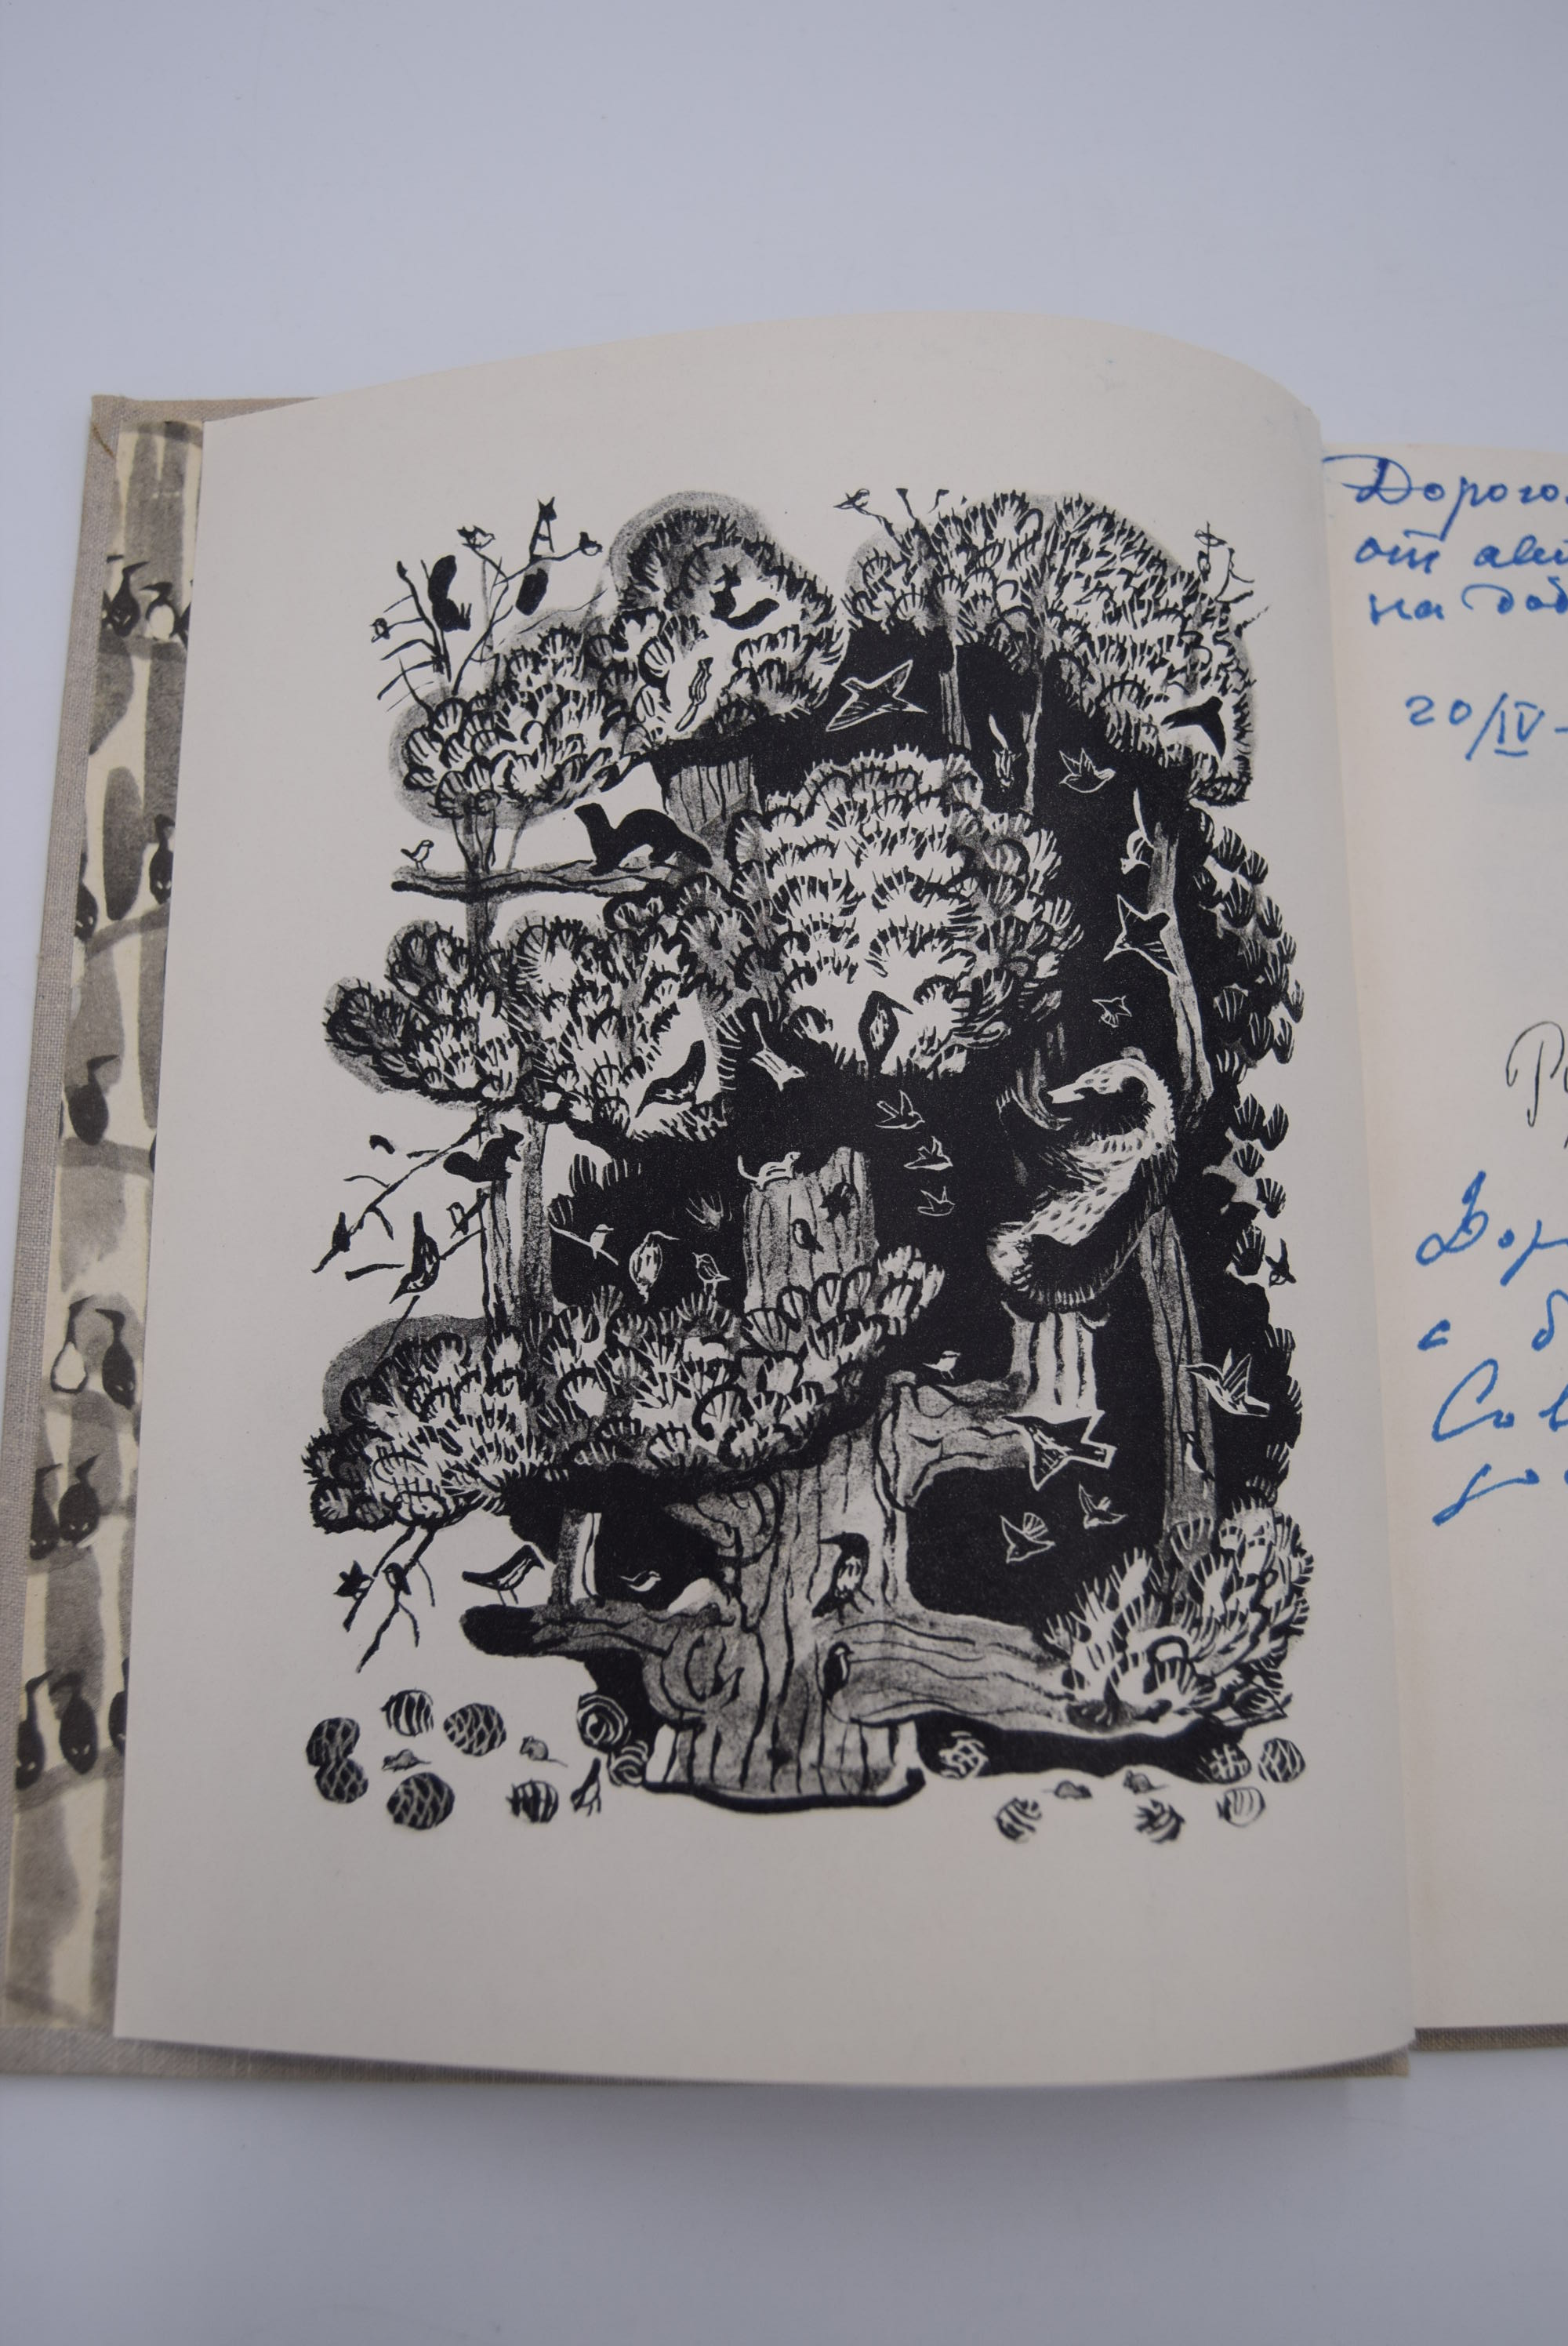 Дорого
от авт
на доб
20/IV-
Р
Дор
с б
Сов